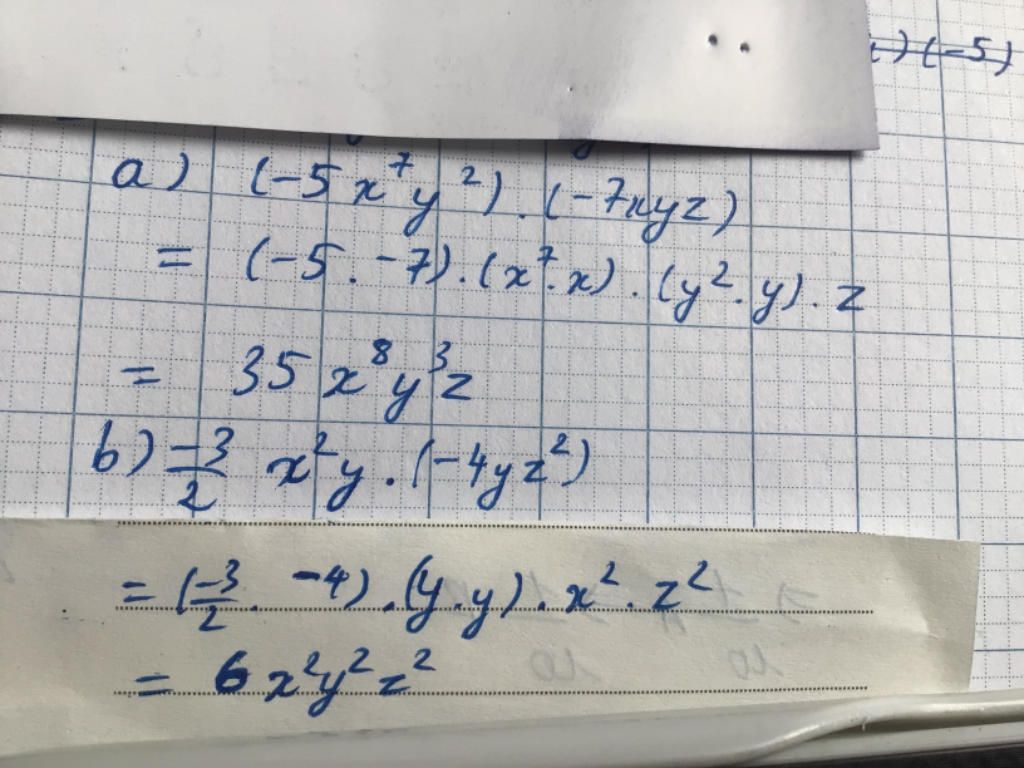 ) (-5)
a) (-5x⁷y²).(-7xyz)
= (-5.-7).(x⁷.x).(y².y).z
= 35x⁸y³z
b) -3/2 x²y.(-4yz²)
= (-3/2. -4).(y.y).x².z²
= 6x²y²z²